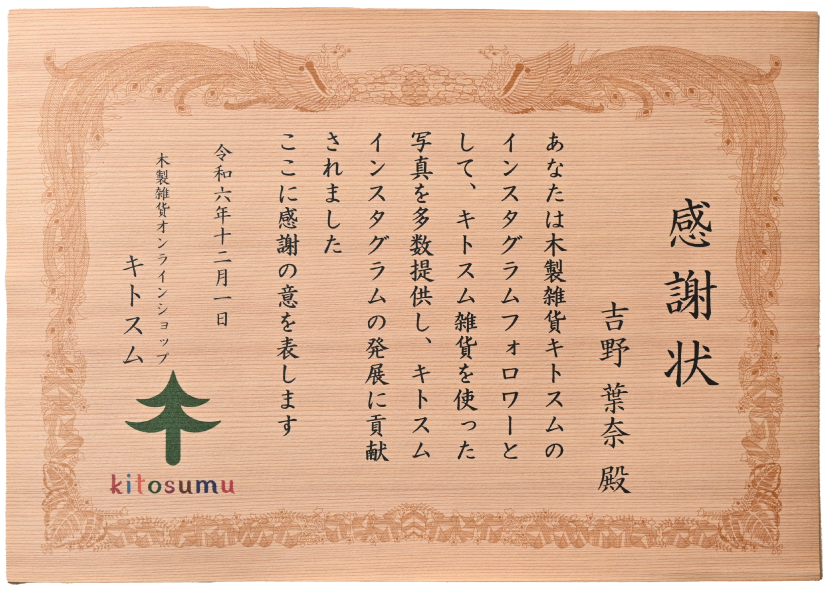 感謝状
吉野 葉奈 殿
あなたは木製雑貨キトスムの
インスタグラムフォロワーと
して、キトスム雑貨を使った
写真を多数提供し、キトスム
インスタグラムの発展に貢献
されました
ここに感謝の意を表します
令和六年十二月一日
木製雑貨オンラインショップ
キトスム
kitosumu